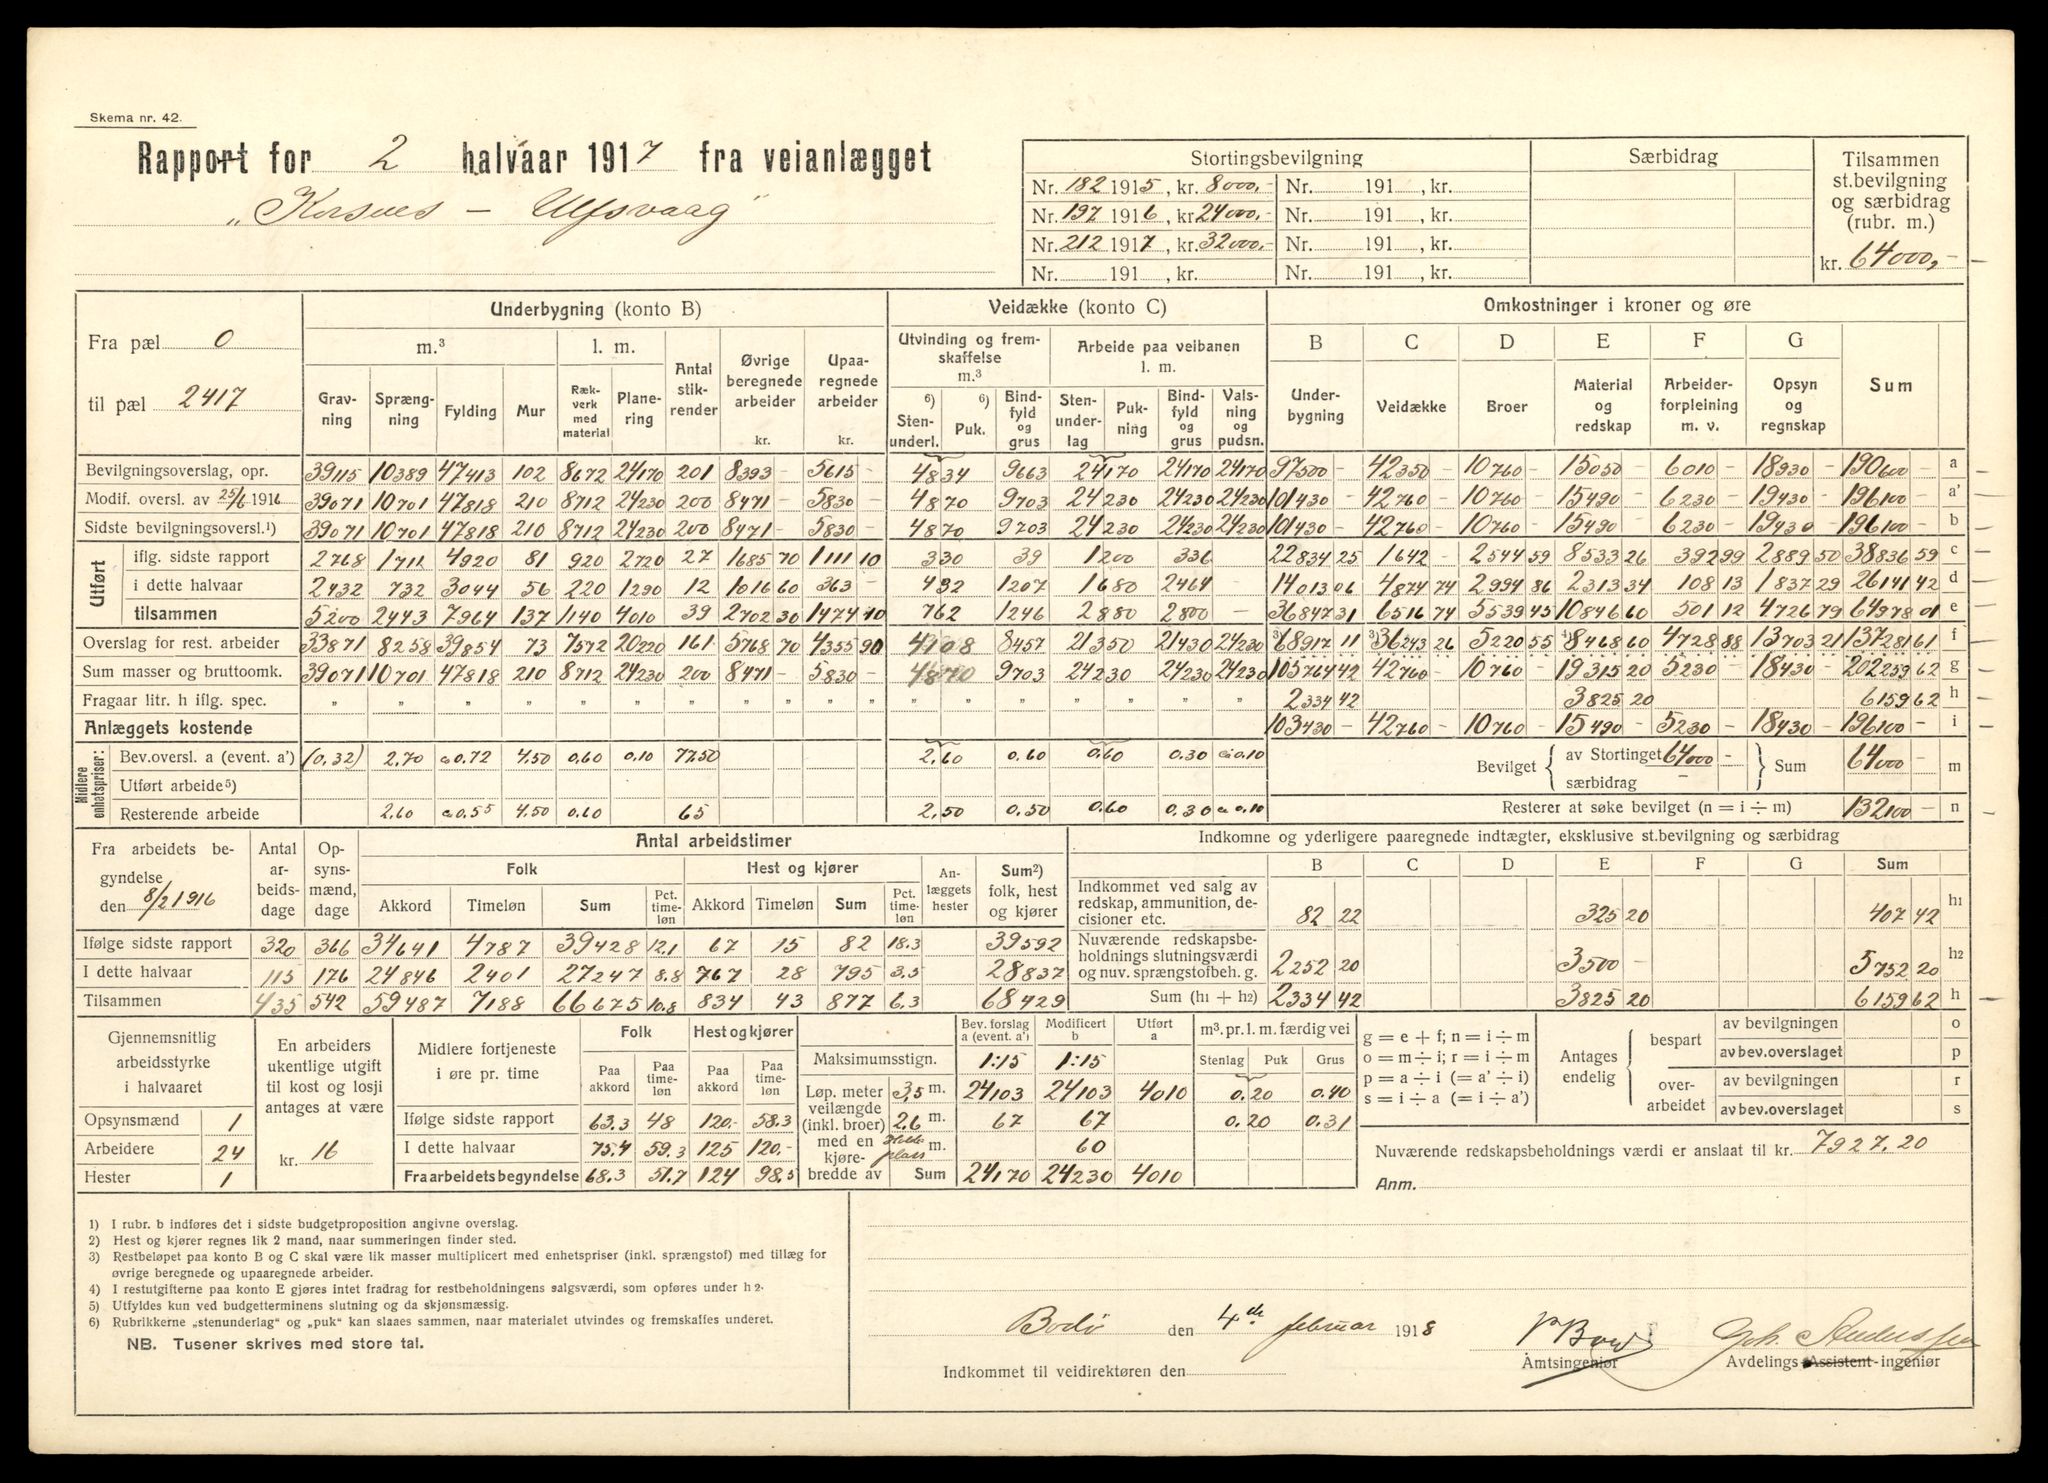 Skema nr. 42.
Rapport for 2 halvaar 1917 fra veianlægget
„Korsnes – Ulfsvaag"
Stortingsbevilgning
Særbidrag
Tilsammen st.bevilgning og særbidrag (rubr. m.)
Nr. 182 1915, kr. 8000,- Nr. 191 , kr.
Nr. 197 1916, kr. 24000,- Nr. 191 , kr.
Nr. 212 1917, kr. 32000,- Nr. 191 , kr.
Nr. 191 , kr. Nr. 191 , kr.
kr. 64000,-
Fra pæl 0
til pæl 2417
Underbygning (konto B) Veidække (konto C) Omkostninger i kroner og øre
m.³ l. m. Antal stikrender Øvrige beregnede arbeider kr. Upaaregnede arbeider kr.
Utvinding og fremskaffelse m.³ Arbeide paa veibanen l. m.
Gravning Sprængning Fylding Mur Rækverk med material Planering
6) Stenunderl. 6) Puk. Bindfyld og grus Stenunderlag Pukning Bindfyld og grus Valsning og pudsn.
B Underbygning C Veidække D Broer E Material og redskap F Arbeiderforpleining m. v. G Opsyn og regnskap Sum
Bevilgningsoverslag, opr. 39115 10389 47413 102 8672 24170 201 8393 - 5615 - 4834 9663 24170 24170 24170 97500 - 42350 - 10760 - 15050 - 6010 - 18930 - 190600 - a
Modif. oversl. av 25/6 1916 39071 10701 47818 210 8712 24230 200 8471 - 5830 - 4870 9703 24230 24230 24230 101430 - 42760 - 10760 - 15490 - 6230 - 19430 - 196100 - a'
Sidste bevilgningsoversl.¹) 39071 10701 47818 210 8712 24230 200 8471 - 5830 - 4870 9703 24230 24230 24230 101430 - 42760 - 10760 - 15490 - 6230 - 19430 - 196100 - b
Utført
iflg. sidste rapport 2768 1711 4920 81 920 2720 27 1685 70 1111 10 330 39 1200 336 22834 25 1642 - 2544 59 8533 26 392 99 2889 50 38836 59 c
i dette halvaar 2432 732 3044 56 220 1290 12 1016 60 363 - 432 1207 1680 2464 - 14013 06 4874 74 2994 86 2313 34 108 13 1837 29 26141 42 d
tilsammen 5200 2443 7964 137 1140 4010 39 2702 30 1474 10 762 1246 2880 2800 - 36847 31 6516 74 5539 45 10846 60 501 12 4726 79 64978 01 e
Overslag for rest. arbeider 33871 8258 39854 73 7572 20220 161 5768 70 4355 90 4108 8457 21350 21430 24230 3) 68917 11 3) 36243 26 5220 55 4) 8468 60 4728 88 13703 21 137281 61 f
Sum masser og bruttoomk. 39071 10701 47818 210 8712 24230 200 8471 - 5830 - 4870 9703 24230 24230 24230 105764 42 42760 - 10760 - 19315 20 5230 - 18430 - 202259 62 g
Fragaar litr. h iflg. spec. " " " " " " " " " " " " " " " " " " 2334 42 3825 20 6159 62 h
Anlæggets kostende 103430 - 42760 - 10760 - 15490 - 5230 - 18430 - 196100 - i
Midlere enhetspriser:
Bev.oversl. a (event. a') (0.32) 2.70 ca 0.72 4.50 0.60 0.10 77.50 2.60 0.60 0.60 0.30 ca 0.10
Utført arbeide⁵)
Resterende arbeide 2.60 ca 0.55 4.50 0.60 65 2.50 0.50 0.60 0.30 ca 0.10
Bevilget { av Stortinget 64000 - særbidrag - } Sum 64000 - m
Resterer at søke bevilget (n = i ÷ m) 132100 - n
Fra arbeidets begyndelse den 8/2 1916
Antal arbeidsdage Opsynsmænd, dage
Antal arbeidstimer
Folk Hest og kjører Anlæggets hester Sum²) folk, hest og kjører
Akkord Timeløn Sum Pct. timeløn Akkord Timeløn Sum Pct. timeløn
Ifølge sidste rapport 320 366 34641 4787 39428 12.1 67 15 82 18.3 39592
I dette halvaar 115 176 24846 2401 27247 8.8 767 28 795 3.5 28837
Tilsammen 435 542 59487 7188 66675 10.8 834 43 877 6.3 68429
Indkomne og yderligere paaregnede indtægter, eksklusive st.bevilgning og særbidrag
B C D E F G Sum
Indkommet ved salg av redskap, ammunition, decisioner etc. 82 22 325 20 407 42 h1
Nuværende redskapsbeholdnings slutningsværdi og nuv. sprængstofbeh. g. 2252 20 3500 - 5752 20 h2
Sum (h1 + h2) 2334 42 3825 20 6159 62 h
Gjennemsnitlig arbeidsstyrke i halvaaret
Opsynsmænd 1
Arbeidere 24
Hester 1
En arbeiders ukentlige utgift til kost og losji antages at være
kr. 16
Midlere fortjeneste i øre pr. time
Folk Hest og kjører
Paa akkord Paa timeløn Paa akkord Paa timeløn
Ifølge sidste rapport 63.3 48 120.- 58.3
I dette halvaar 75.4 59.3 125 120.-
Fra arbeidets begyndelse 68.3 51.7 124 98.5
Bev. forslag a (event. a') Modificert b Utført a
Maksimumsstign. 1:15 1:15
Løp. meter veilængde (inkl. broer) med en kjørebredde av
3,5 m. 24103 24103 4010
2.6 m. 67 67
m. 60
Sum 24170 24230 4010
m³. pr. l. m. færdig vei
Stenlag Puk Grus
0.20 0.40
0.20 0.31
g = e + f; n = i ÷ m
o = m ÷ i; r = i ÷ m
p = a ÷ i (= a' ÷ i)
s = i ÷ a (= i ÷ a')
Antages endelig
bespart av bevilgningen o
av bev.overslaget p
overarbeidet av bevilgningen r
av bev.overslaget s
Nuværende redskapsbeholdnings værdi er anslaat til kr. 7927.20
Anm.
1) I rubr. b indføres det i sidste budgetproposition angivne overslag.
2) Hest og kjører regnes lik 2 mand, naar summeringen finder sted.
3) Restbeløpet paa konto B og C skal være lik masser multiplicert med enhetspriser (inkl. sprængstof) med tillæg for
øvrige beregnede og upaaregnede arbeider.
4) I restutgifterne paa konto E gjøres intet fradrag for restbeholdningens salgsværdi, som opføres under h 2.
5) Utfyldes kun ved budgetterminens slutning og da skjønsmæssig.
6) Rubrikkerne „stenunderlag" og „puk" kan slaaes sammen, naar materialet utvindes og fremskaffes underet.
NB. Tusener skrives med store tal.
Bodø den 4de februar 1918
Indkommet til veidirektøren den
Amtsingeniør
Joh. Anderssen
Avdelings Assistent-ingeniør